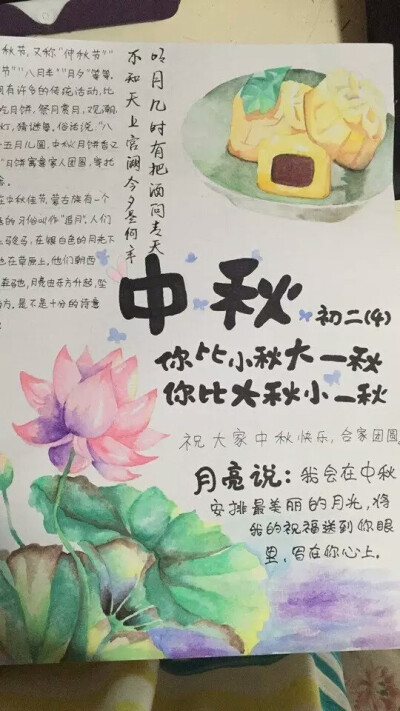 秋节,又称"仲秋节"
节""八月半""月夕"等等。
有许多的传统活动,比
吃月饼,祭月赏月,观潮
灯,猜谜等。俗话说,"八
十五月儿圆,中秋月饼香又
"月饼寓意家人团圆,寄托
在中秋佳节,蒙古族有一个
的习俗叫作"追月"。人们
上骏马,在银白色的月光下
也在草原上。他们朝西
奔驰,月亮由东方升起,坠
方,是不是十分的诗意
明月几时有把酒问青天
不知天上宫阙今夕是何年
中秋
初二(4)
你比小秋大一秋
你比大秋小一秋
祝大家中秋快乐,合家团圆
月亮说:我会在中秋
安排最美丽的月光,将
我的祝福送到你眼
里,写在你心上。